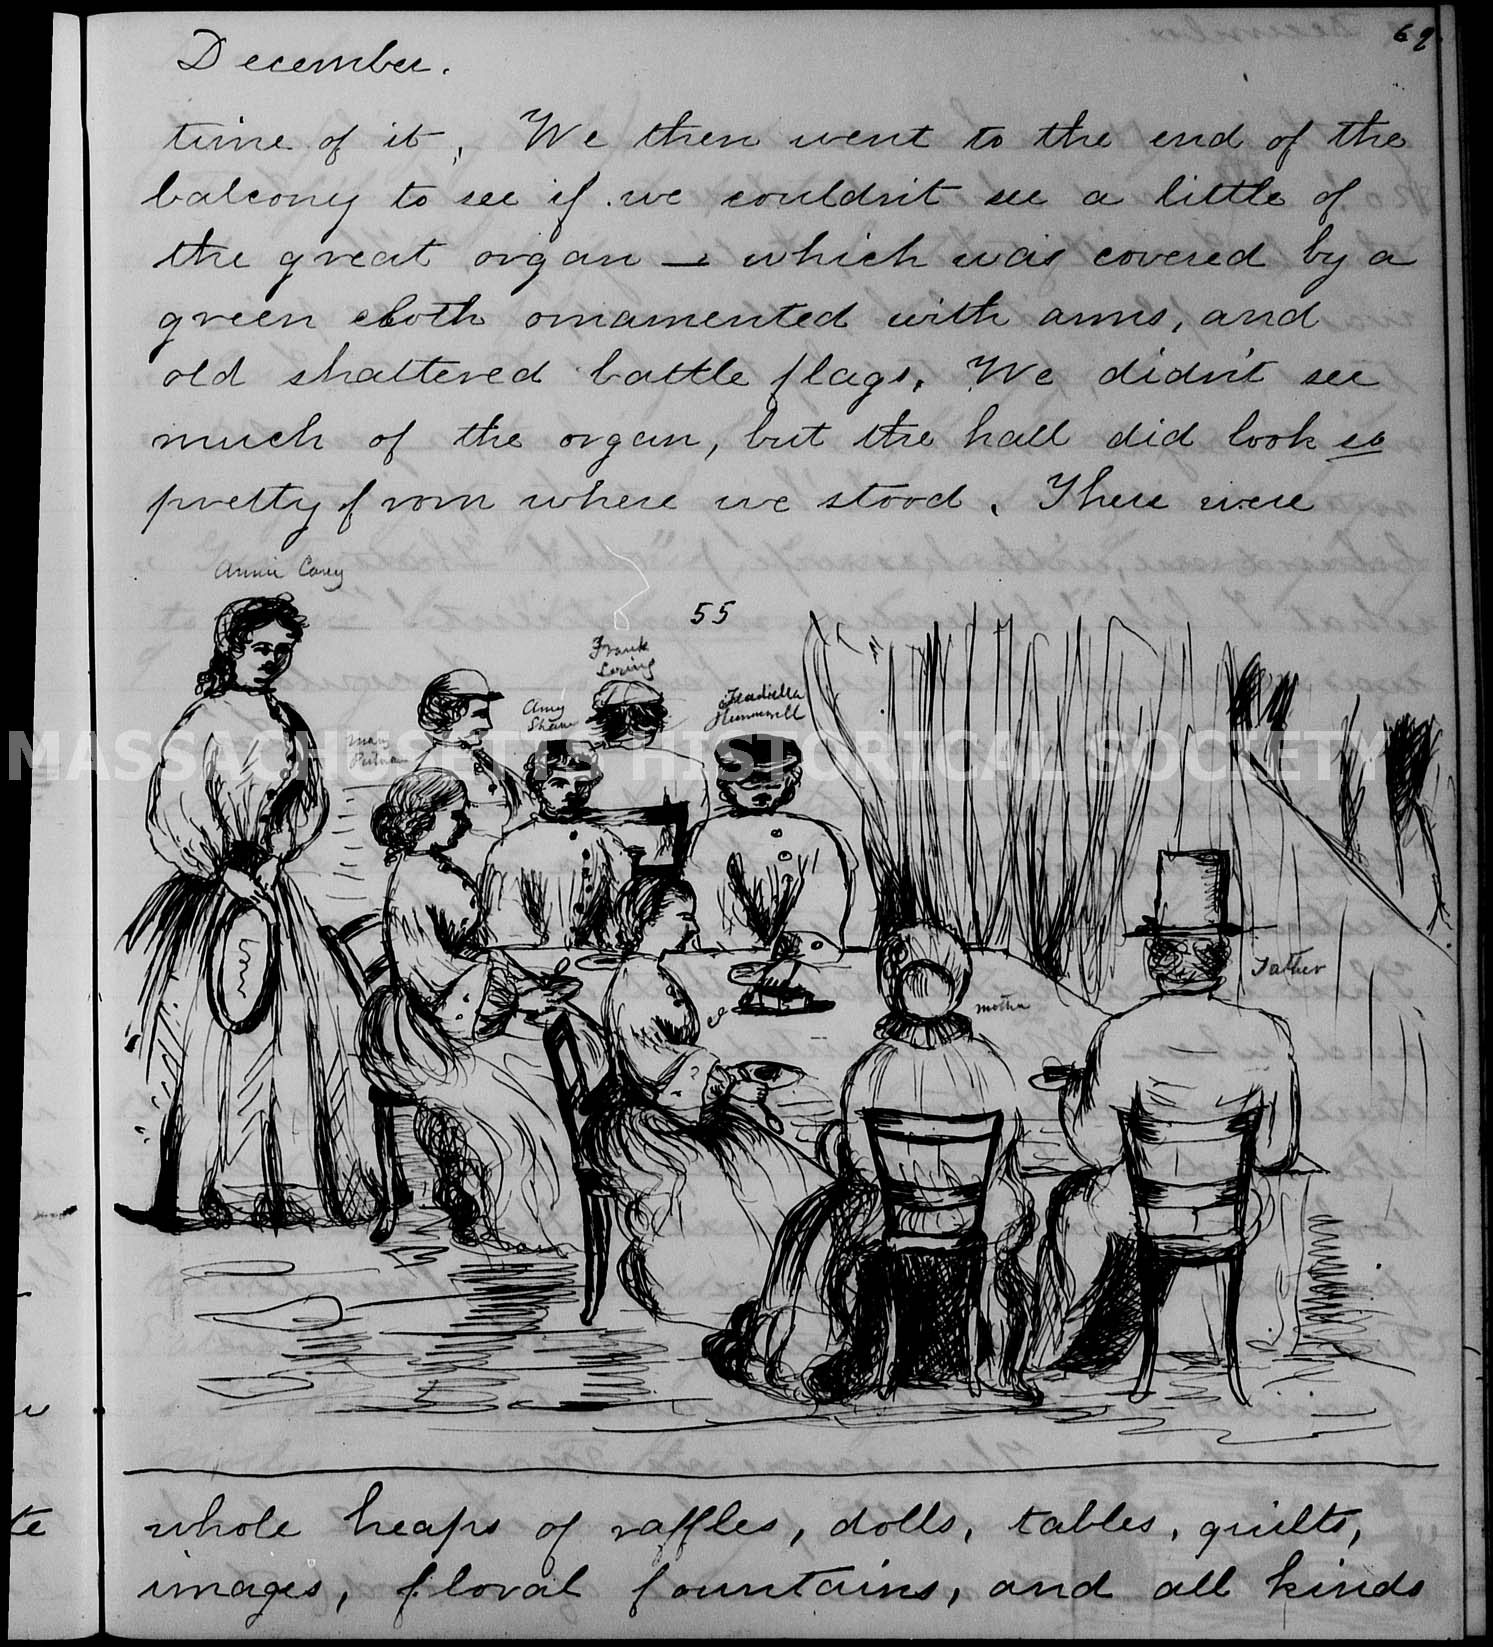 69
December.
time of it, We then went to the end of the
balcony to see if we couldn't see a little of
the great organ — which was covered by a
green cloth ornamented with arms, and
old shattered battle flags. We didn't see
much of the organ, but the hall did look so
pretty from where we stood. There were
Annie Cary
55
Frank
Loring
Amy
Shaw
Hunnewell
Mary
Putnam
MASSACHUSETTS HISTORICAL SOCIETY
Father
mother
whole heaps of raffles, dolls, tables, quilts,
images, floral fountains, and all kinds
te